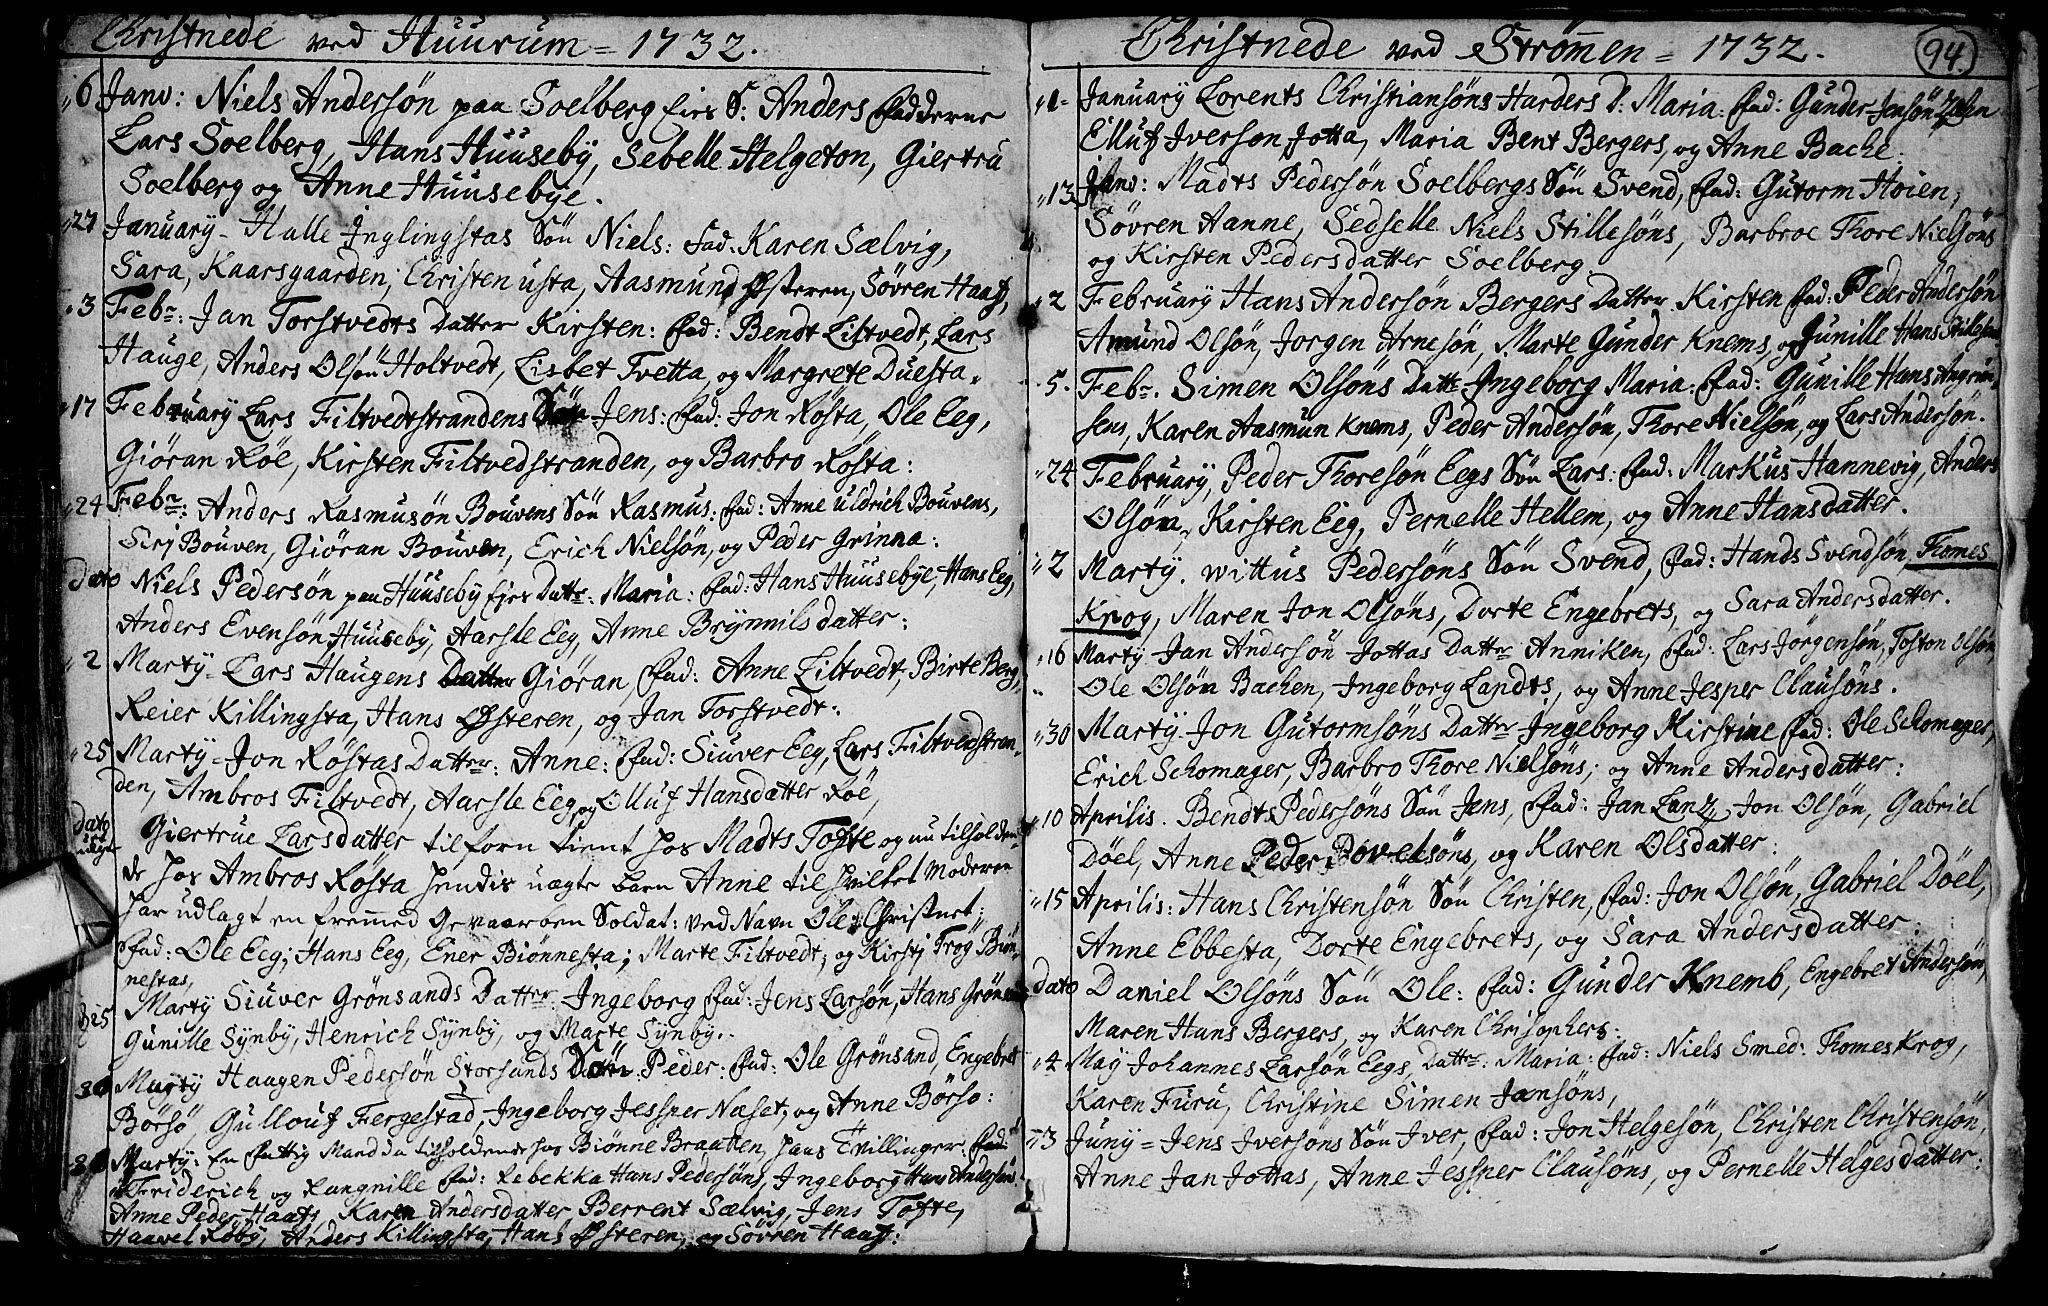 Christnede ved Huurum = 1732.
6 Janv: Niels Andersön paa Soelberg Eies S: Anders Fadderne
Lars Soelberg, Hans Huuseby, Sebelle Helgeton, Giertru
Soelberg og Anne Huusebye.
27 January - Halle Inglingstas Sön Niels: fad. Karen Sælvig,
Sara, Kaarsgaarden, Christen usta, Aasmund Østeren, Sövren Haaf,
3 Febr: Jan Torstvedts Datter Kirsten: fad: Bendt Liltvedt, Lars
Hauge, Anders Olsön Holtvedt, Lisbet Tvetta, og Margrete Duesta.
17 February Lars Filtvedtstrandens Sön Jens: fad: Jon Rösta, Ole Eeg,
Giöran Röe, Kirsten Filtvedstranden, og Barbro Rösta:
24 Febr: Anders Rasmusön Bouvens Sön Rasmus: fad: Anne Uldrich Bouvens,
Sirj Bouven, Giöran Bouven, Erich Nielsön, og Peder Grinna:
Dato Niels Pedersön paa Huuseby Ejes Dattr: Maria: fad: Hans Huusebye, Hans Eeg,
Anders Evensön Huuseby, Aarsle Eeg, Anne Brynnils datter:
2 Marty - Lars Haugens Datter Giöran, fad: Anne Liltvedt, Birte Berg,
Reier Killingsta, Hans Østeren, og Jan Torstvedt:
25 Marty = Jon Röstas Datter: Anne: fad: Siuver Eeg, Lars Filtvedstran-
den, Ambros Filtvedt, Aarsle Eeg, og Olluf Hansdatter Röe,
Dato Giertrue Larsdatter tilforn tient hos Madts Tofte og nu tilholden-
de hos Ambros Rösta hendis uægte barn Anne til hvilket Moderen
har udlagt en fremmed Gevaarben Soldat: ved Navn Ole Christnet;
fad: Ole Eeg; Hans Eeg, Ener Biönnesta; Marte Filtvedt; og Kirstj Frog Biön-
nestas,
25 Marty Siuver Grönsands Datter Ingeborg fad: Jens Larsön, Hans Grönsand,
Gunille Synby, Henrich Synby, og Marte Synby.
30 Marty Haagen Pedersön Storsands Sön Peder: fad: Ole Grönsand, Engebret
Börsö, Gullouf Fergestad, Ingeborg Jessper Næset, og Anne Börsö:
Marty: En fattig Mand da tilholdende hos Biönne Braaten, hans Tvillinger
Friderich og Rangnille fad: Rebekka Hans Pedersöns, Ingeborg Hans Andersöns
Anne Peder Haafs Karen Andersdatter Berrent Sælvig, Jens Tofte,
Haavel Röby, Anders Killingsta, Hans Østeren, og Sövren Haaf:
Christnede ved Strömen = 1732. 94.
1 - January Lorents Christiansöns Harders D: Maria: fad: Gunder Jensön
Elluf Iversön Jotta, Maria Bent Bergers, og Anne Bache.
13 Janv: Madts Pedersön Soelbergs Sön Svend, fad: Gutorm Höien,
Sövren Hanne, Sedselle Niels Stillesöns, Barbroe Thore Nielsöns
og Kirsten Pedersdatter Soelberg.
2 February Hans Andersön Bergers Datter Kirsten fad: Peder Andersön
Amund Olsön, Jorgen Arnesön, Marte Gunder Knems og Gunille Hans Stillesöns
5. Febr. Simen Olsöns Dattr Ingeborg Maria: fad: Gunille Hans
sens, Karen Aasmun Knems, Peder Andersön, Thore Nielsön, og Lars Andersön.
24 February, Peder Thoresön Eegs Sön Lars: fad: Markus Hannevig, Anders
Olsön, Kirsten Eeg, Pernelle Hellem, og Anne Hansdatter.
2 Marty. Wittus Pedersöns Sön Svend, fad: Hands Svendsön, Thomes
Krog, Maren Jon Olsöns, Dorte Engebrets, og Sara Andersdatter.
16 Marty Jan Andersön Jottas Dattr Anniken, fad: Lars Jörgensön, Toston Olsön,
Ole Olsön Bachen, Ingeborg Landts, og Anne Jesper Clausöns.
30 Marty Jon Gutormsöns Dattr Ingeborg Kirstine fad: Ole Schomager,
Erich Schomager, Barbro Thore Nielsöns, og Anne Andersdatter:
10 Aprilis. Bendt Pedersöns Sön Jens, fad: Jan Lantz, Jon Olsön, Gabriel
Döel, Anne Peder Povelsöns, og Karen Olsdatter:
15 Aprilis: Hans Christensön Sön Christen, fad: Jon Olsön, Gabriel Döel,
Anne Ebbesta, Dorte Engebrets, og Sara Andersdatter:
Dato Daniel Olsöns Sön Ole: fad: Gunder Knemb, Engebret Andersön,
Maren Hans Bergers, og Karen Chrisophers:
4 May Johannes Larsön Eegs, Dattr: Maria: fad: Niels Smed: Thomes Krog,
Karen Furu, Christine Simen Jansöns,
3 Juny = Jens Iversöns Sön Iver, fad: Jon Helgesön, Christen Christensön,
Anne Jan Jottas, Anne Jessper Clausöns, og Pernelle Helgesdatter: